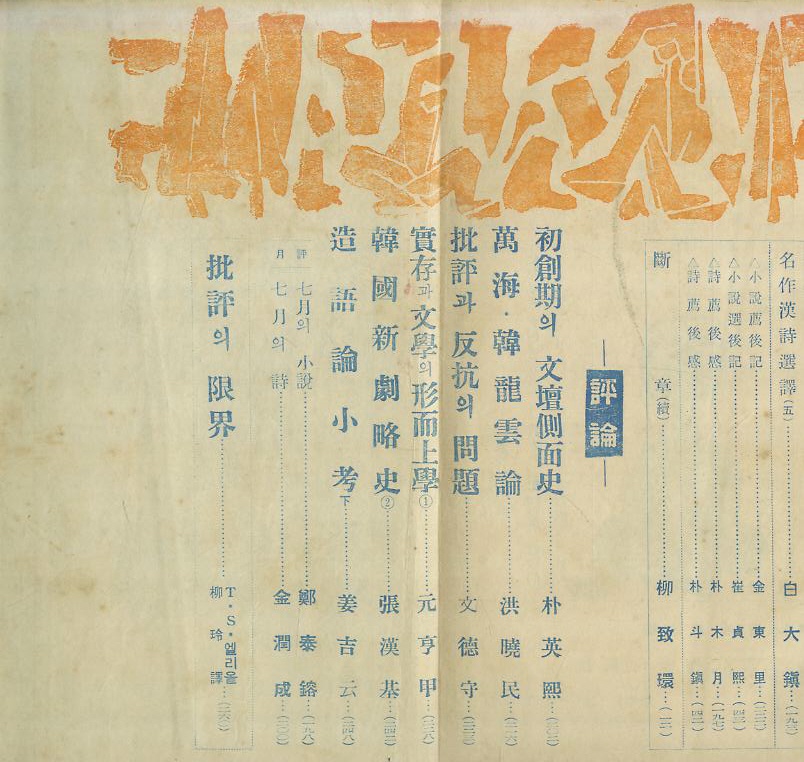 名作漢詩選譯(五)……白大鎭…(一九〇)
△小說薦後記……金東里…(三三)
△小說選後記……崔貞熙…
△詩薦後感……朴木月…(一九七)
△詩薦後感……朴斗鎭…
斷章(續)……柳致環…
評論
初創期의 文壇側面史……朴英熙…
萬海·韓龍雲論……洪曉民…
批評과 反抗의 問題……文德守…
實存과 文學의 形而上學①……元亨甲…
韓國新劇略史②……張漢基…
造語論小考 下……姜吉云…(二四八)
月評
七月의 小說……鄭泰鎔…(一九八)
七月의 詩……金潤成…(二〇〇)
批評의 限界……T·S·엘리올…
柳玲譯…(二六〇)